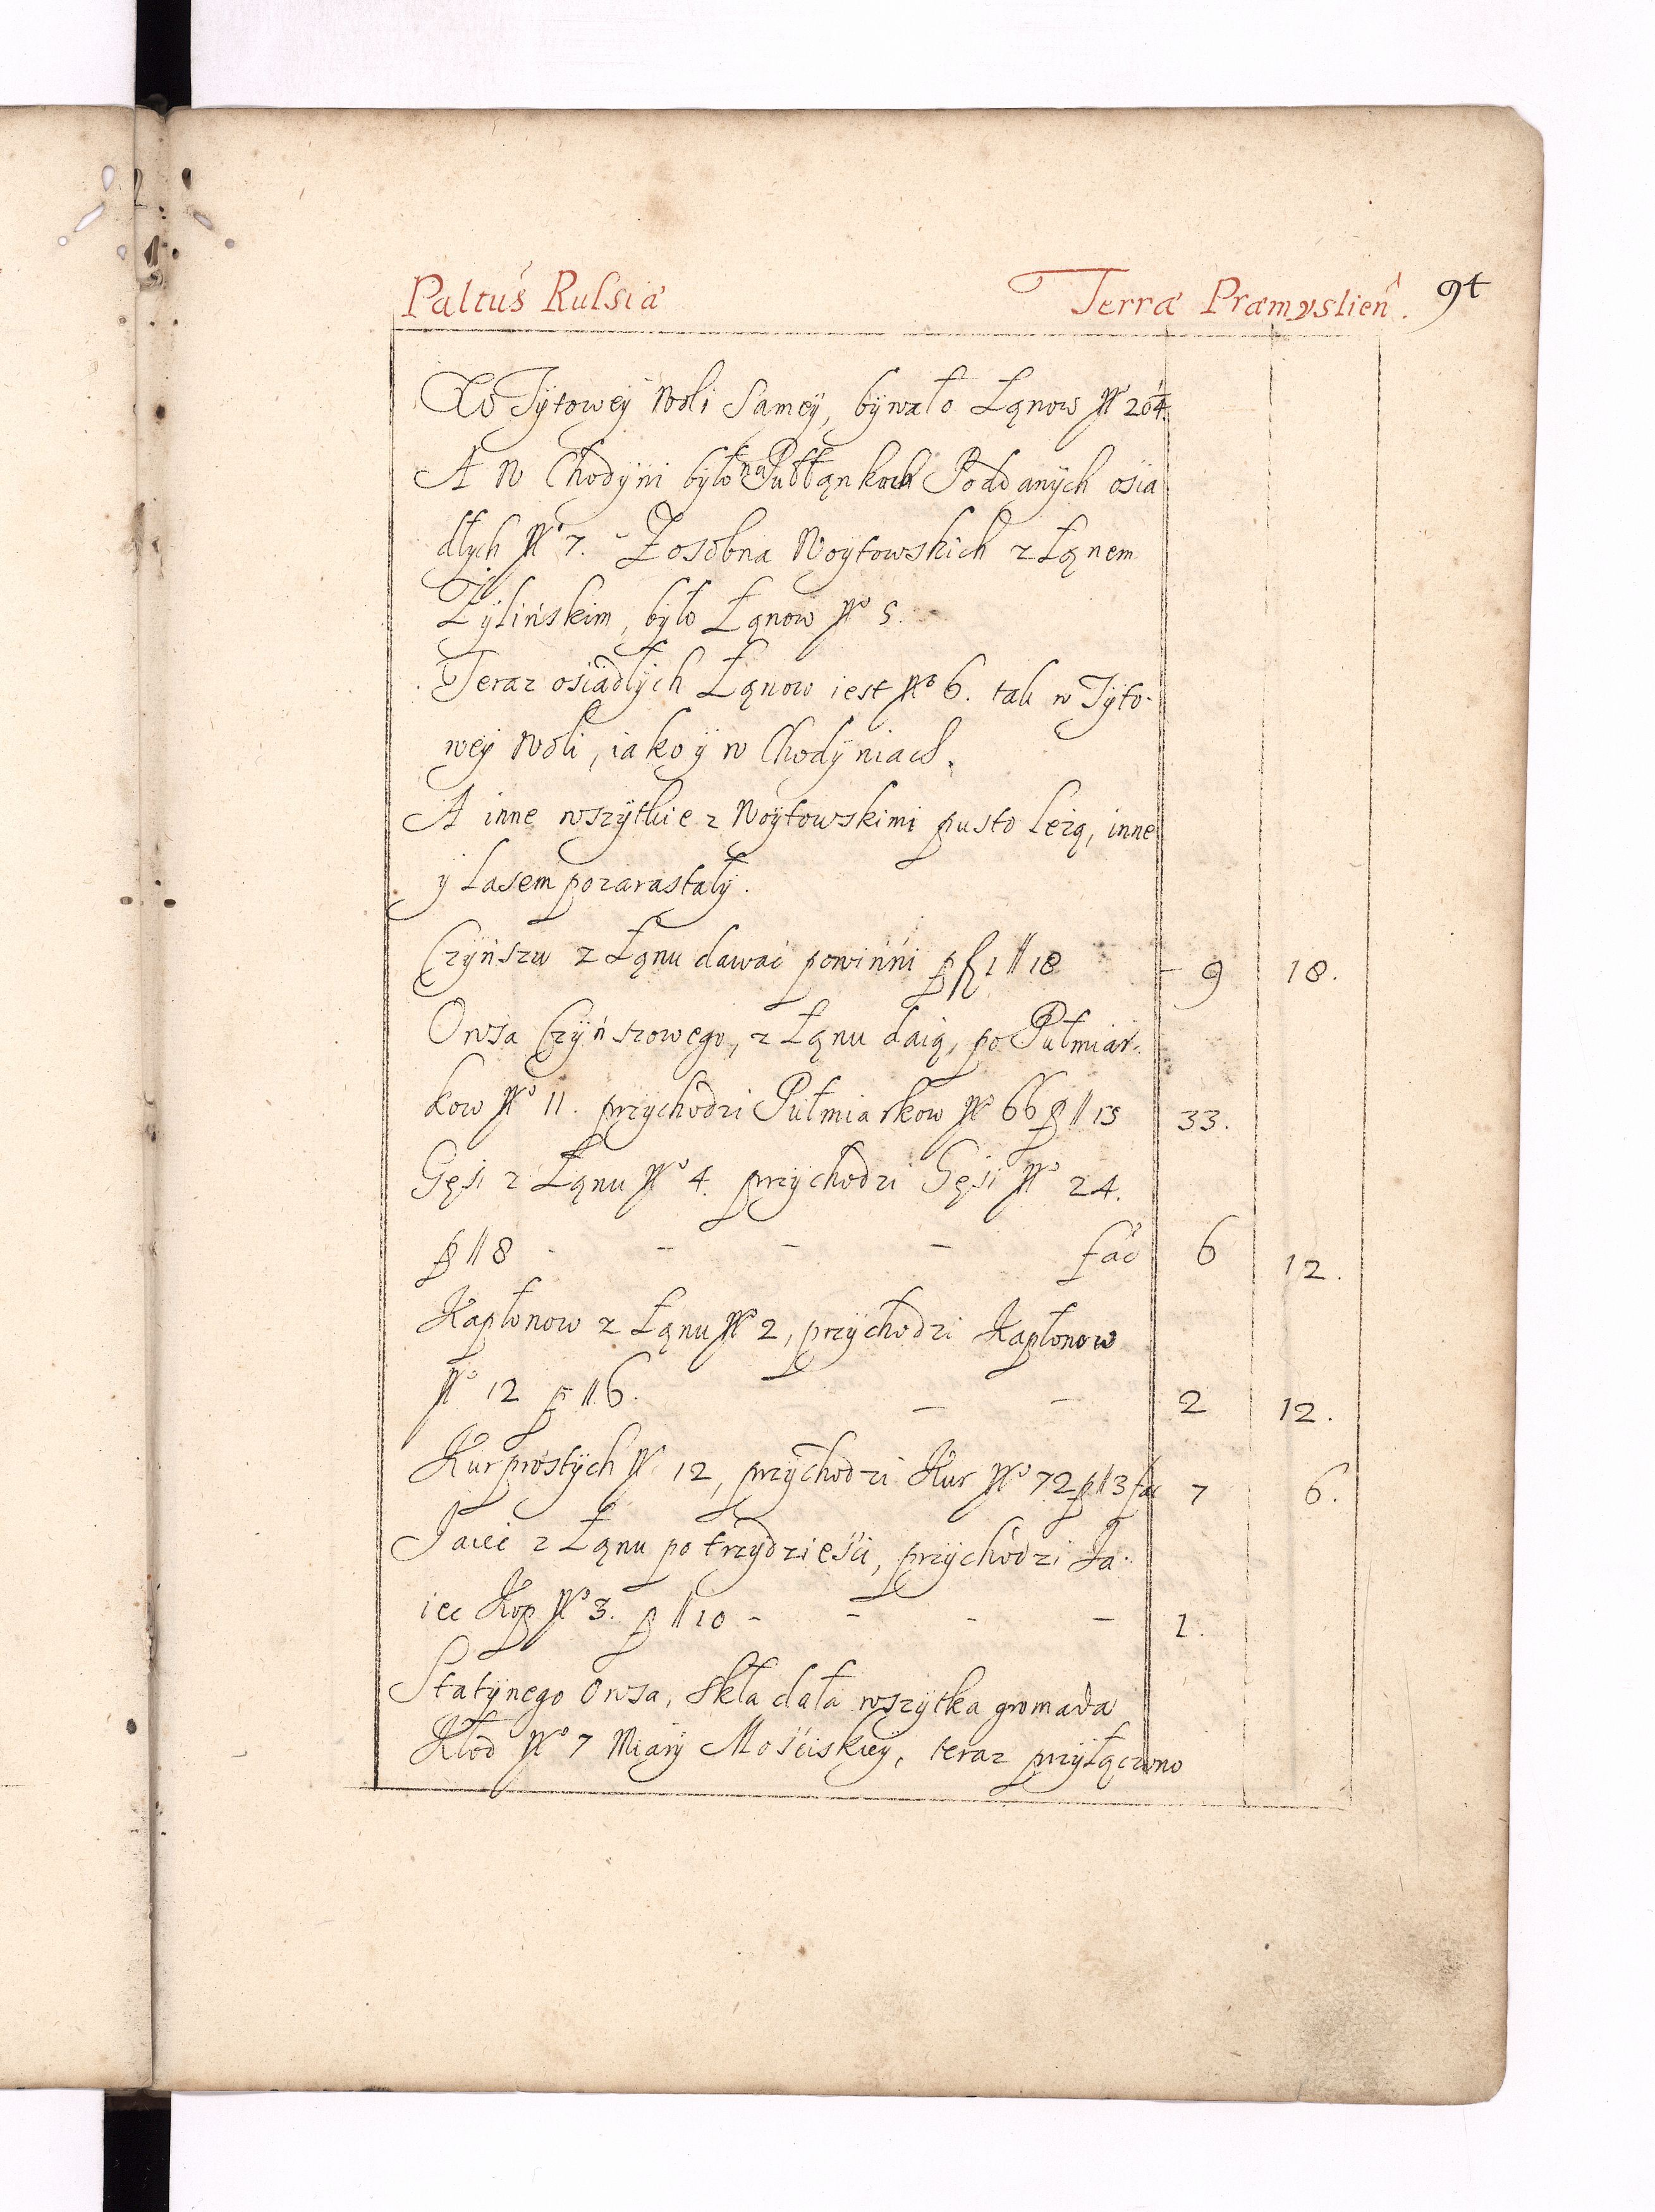 Paltus Russiæ Terræ Præmyslien. 94
W Tÿtowey Woli Sameÿ, bÿwało Łąnow No 20¼
A W Chodÿni było na Pułłąnkach Poddanÿch osia
dłych No 7. Zosobna Woÿtowskich z Łąnem
Żÿlińskim, bÿło Łąnow No 5.
Teraz osiadłÿch Łąnow iest No 6. tak w Tÿto-
weÿ Woli, iako ÿ w Chodÿniach.
A inne wszÿtkie z Woÿtowskimi pusto leżą, inne
ÿ Lasem pozarastałÿ.
Czÿńszu z Łąnu dawać powinni p fl 1 // 18 - 9 18.
Owsa Czÿńszowego, z Łąnu daią, po Pułmiar-
kow No 11. przÿchodzi Pułmiarkow No 66 p // 15 33.
Gęsi z Łąnu No 4. przÿchodzi Gęsi No 24.
p // 8 - - - - fac 6 12.
Kapłonow z Łąnu No 2, przÿchodzi Kapłonow
No 12 p // 6. - - 2 12.
Kur prostÿch No 12, przÿchodzi Kur No 72 p // 3 fac 7 6.
Jaiec z Łąnu po trzÿdzieści, przÿchodzi Ja-
iec Kop No 3. p // 10 - - - - 1.
Statÿnego Owsa, składała wszÿtka gromada
Kłod No 7 Miarÿ Mościskieÿ, teraz przÿłączono